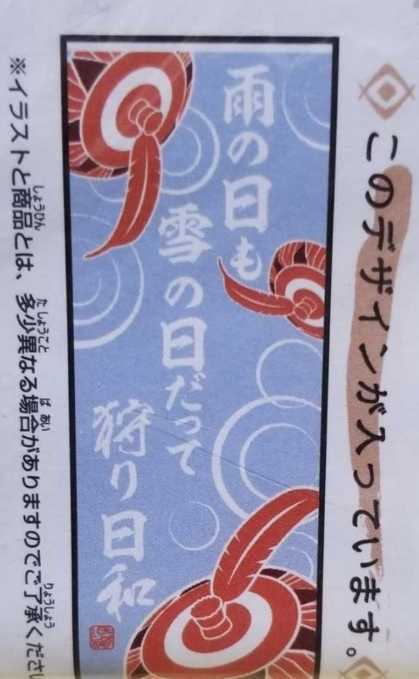 このデザインが入っています。
雨の日も
雪の日だって
狩り日和
※イラストと商品とは、多少異なる場合がありますのでご了承くださ